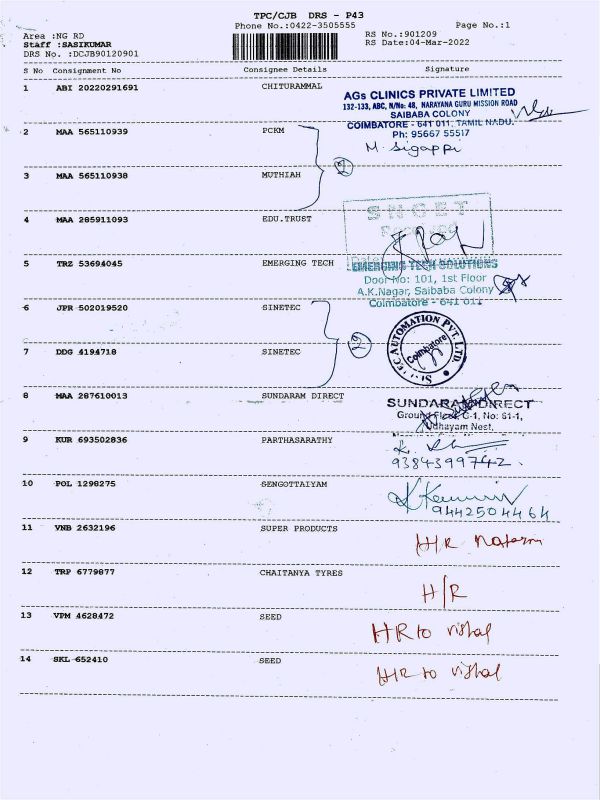 TPC/CJB DRS - P43
Phone No.:0422-3505555 Page No.:1
Area :NG RD RS No.:901209
Staff :SASIKUMAR RS Date:04-Mar-2022
DRS No. :DCJB90120901
S No Consignment No Consignee Details Signature
1 ABI 20220291691 CHITURAMMAL
AGs CLINICS PRIVATE LIMITED
132-133, ABC, N/No: 48, NARAYANA GURU MISSION ROAD
SAIBABA COLONY
COIMBATORE - 641 011, TAMIL NADU.
Ph: 95667 55517
2 MAA 565110939 PCKM M. Sigappi
2
3 MAA 565110938 MUTHIAH
4 MAA 285911093 EDU.TRUST
SNGET
Received
Date
5 TRZ 53694045 EMERGING TECH
EMERGING TECH SOLUTIONS
Door No: 101, 1st Floor
A.K.Nagar, Saibaba Colony
Coimbatore - 641 011
6 JPR 502019520 SINETEC
SINETEC AUTOMATION PVT. LTD.
Coimbatore
7 DDG 4194718 SINETEC
8 MAA 287610013 SUNDARAM DIRECT
SUNDARAM DIRECT
Ground Floor, C-1, No: S1-1,
Udhayam Nest,
9 KUR 693502836 PARTHASARATHY
9384399742.
10 POL 1298275 SENGOTTAIYAM
9442504464
11 VNB 2632196 SUPER PRODUCTS
H/R
12 TRP 6779877 CHAITANYA TYRES
H/R
13 VPM 4628472 SEED
HR to vishal
14 SKL 652410 SEED
HR to vishal